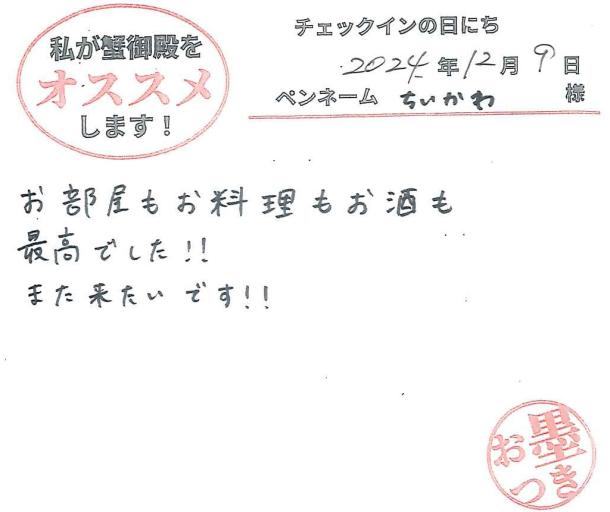 私が蟹御殿を
オススメ
します！
チェックインの日にち
2024年12月9日
ペンネーム ちいかわ 様
お部屋もお料理もお酒も
最高でした!!
また来たいです!!
お墨
つき